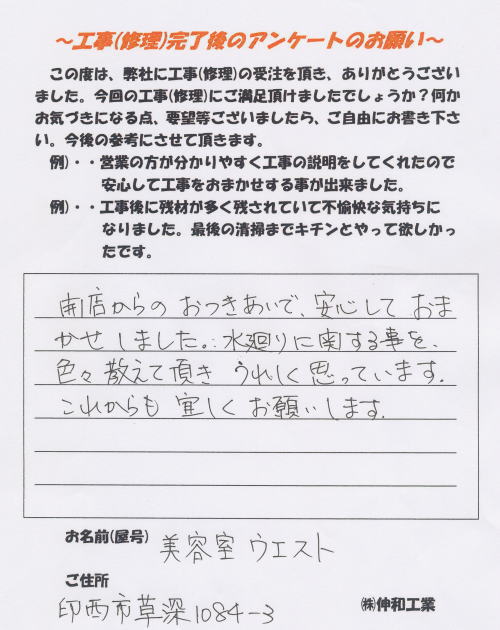 ～工事(修理)完了後のアンケートのお願い～
この度は、弊社に工事(修理)の受注を頂き、ありがとうござい
ました。今回の工事(修理)にご満足頂けましたでしょうか？何か
お気づきになる点、要望等ございましたら、ご自由にお書き下さ
い。今後の参考にさせて頂きます。
例)・・営業の方が分かりやすく工事の説明をしてくれたので
安心して工事をおまかせする事が出来ました。
例)・・工事後に残材が多く残されていて不愉快な気持ちに
なりました。最後の清掃までキチンとやって欲しかっ
たです。
開店からの おつきあいで、安心して おま
かせ しました。水廻りに関する事を、
色々 教えて頂き うれしく 思っています。
これからも 宜しく お願いします。
お名前(屋号) 美容室 ウエスト
ご住所
印西市草深1084-3
㈱伸和工業